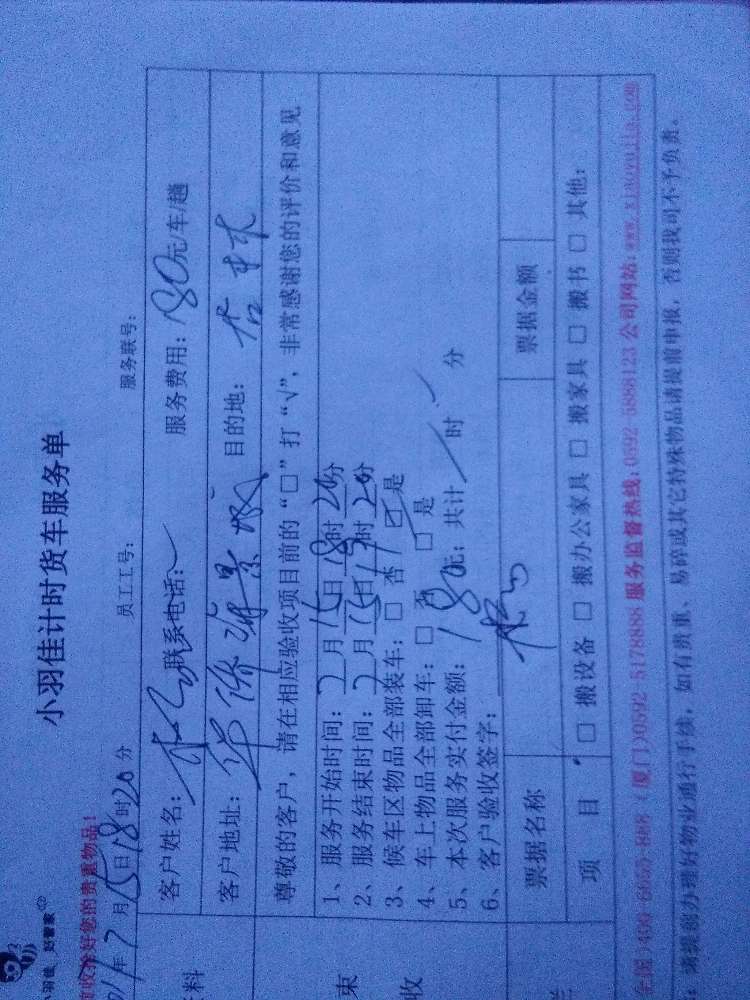 小羽佳计时货车服务单
小羽佳 好管家
收拾好您的贵重物品!
年7月15日18时20分 员工工号: 服务联号:
客户姓名: 联系电话: 服务费用: 180元/车/趟
客户地址: 华侨海景城 目的地: 杏林
尊敬的客户，请在相应验收项目前的“□”打“√”，非常感谢您的评价和意见
1、服务开始时间: 7月15日18时20分
2、服务结束时间: 7月15日19时20分
3、候车区物品全部装车: □ 否 ☑ 是
4、车上物品全部卸车: □ 否 □ 是
5、本次服务实付金额: 180元; 共计 / 时 分
6、客户验收签字:
票据名称 票据金额
项 目 □ 搬设备 □ 搬办公家具 □ 搬家具 □ 搬书 □ 其他:
全国 400-6663-888 (厦门)0592 5178888 服务监督热线:0592 5888123 公司网站:www.xiaoyujia.com
请提前办理好物业通行手续，如有贵重、易碎或其它特殊物品请提前申报，否则我司不予负责。
料
束
收